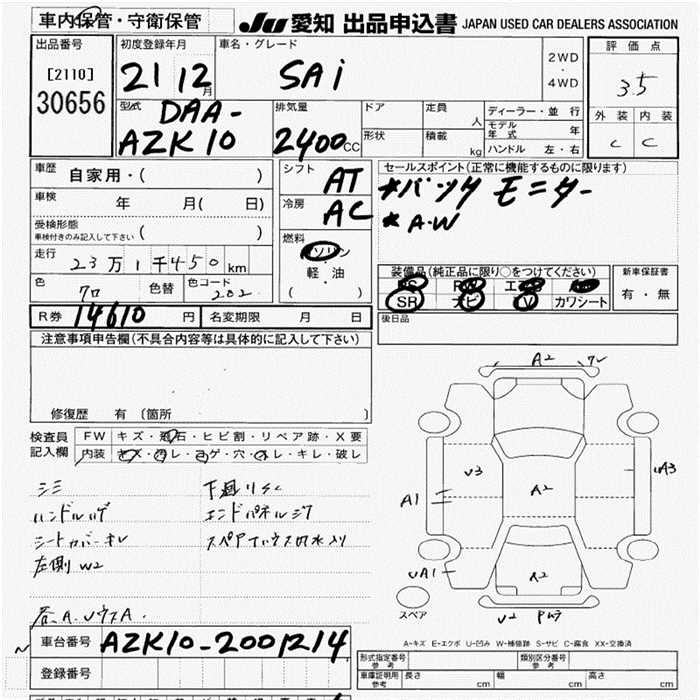 車内保管・守衛保管
JU 愛知 出品申込書 JAPAN USED CAR DEALERS ASSOCIATION
出品番号
[2110]
30656
初度登録年月
21 12月
車名・グレード
SAi
2WD
・
4WD
評価点
3.5
外装 内装
C C
型式 DAA-
AZK10
排気量
2400CC
ドア
形状
定員 人
積載 kg
ディーラー・並行
モデル年式 年
ハンドル 左・右
車歴 自家用・( )
車検 年 月( 日)
受検形態
車検付きのみ記入して下さい ( )
走行 23万1千450km
色 クロ 色替
色コード 202
シフト AT
冷房 AC
燃料
ガソリン
・
軽油
( )
セールスポイント(正常に機能するものに限ります)
*バックモニター
*A・W
装備品(純正品に限り○をつけてください)
SR ナビ TV カワシート
新車保証書
有・無
後日品
R券 14610円
名変期限 月 日
注意事項申告欄(不具合内容等は具体的に記入して下さい)
修復歴 有 〔箇所 〕
検査員記入欄
FW キズ・飛石・ヒビ割・リペア跡・X要
内装 キズ・汚レ・コゲ・穴・スレ・キレ・破レ
シミ
ハンドルハゲ
シートカバーキレ
左側W2
下廻リSC
エンドパネルシワ
A2
U3
A1
A2
A3
UA1
A2
U2
スペア
A-キズ E-エクボ U-凹み W-補修跡 S-サビ C-腐食 XX-交換済
車台番号 AZK10-2001214
登録番号
形式指定番号
参考
類別区分番号
参考
車庫証明用
参考
長さ cm 幅 cm 高さ cm